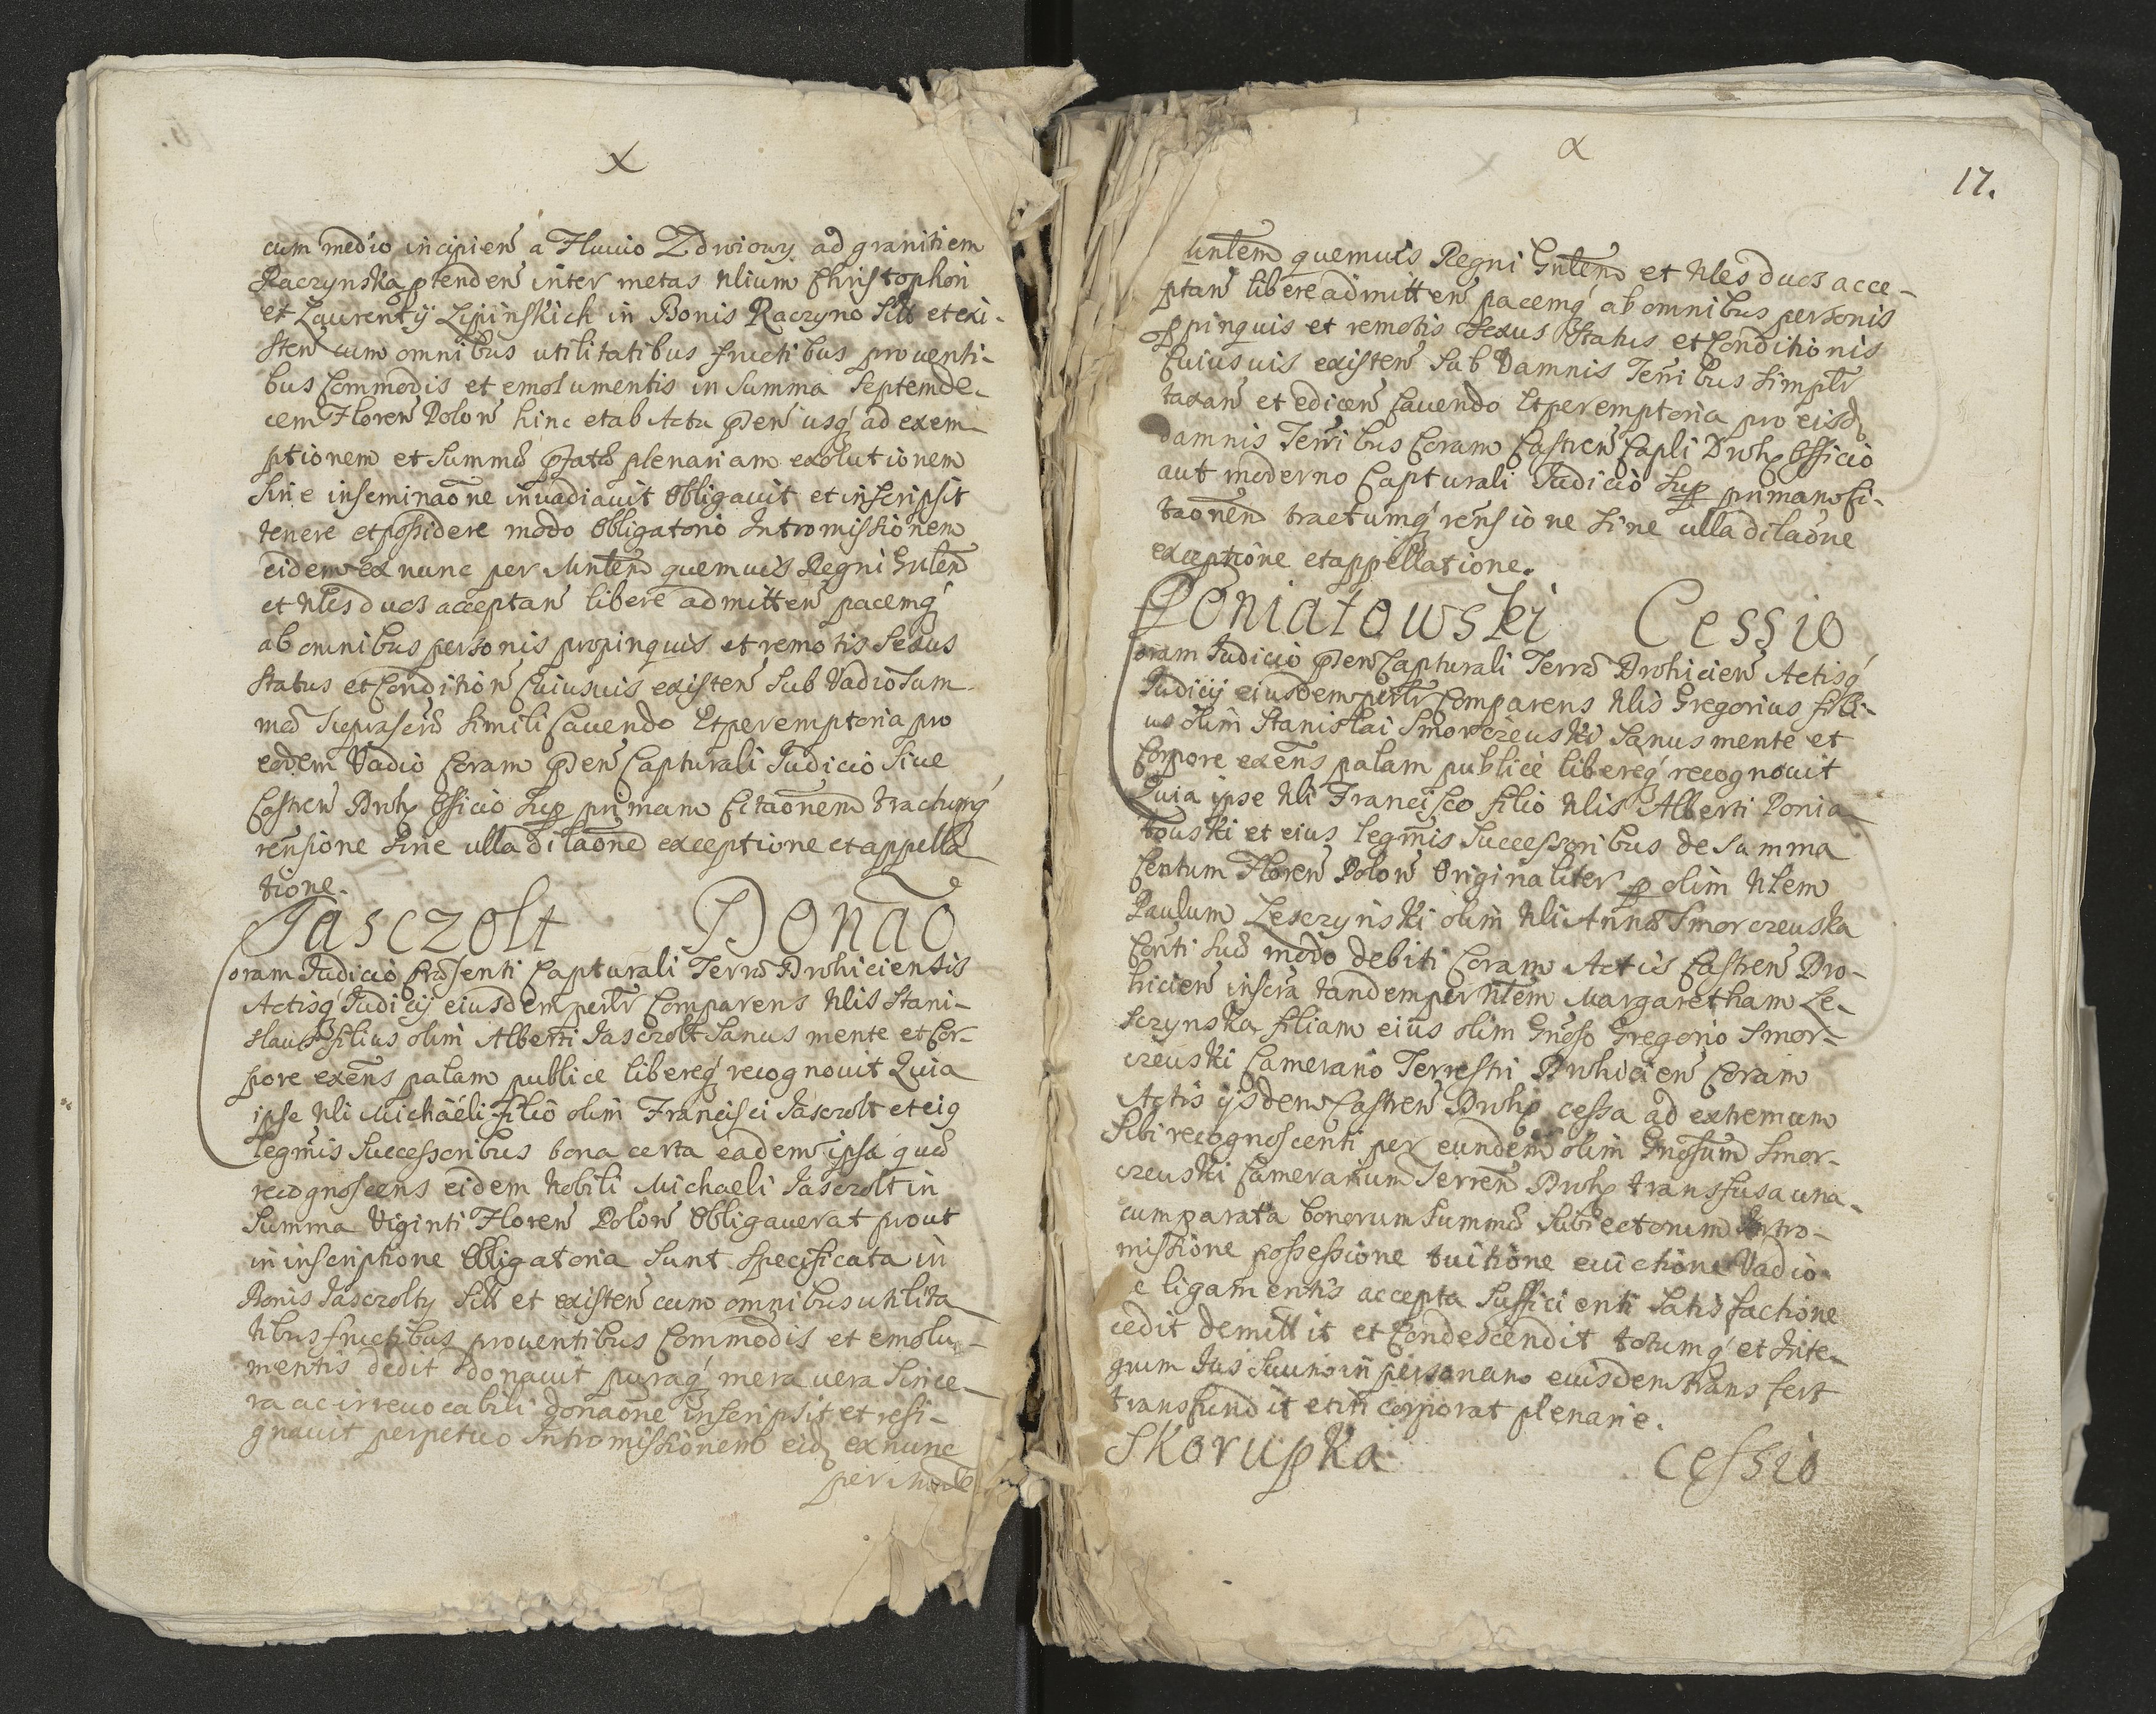 X
cum medio incipien a Fluvio Zdroiowy ad granitiem
Raczynska ptenden inter metas Nlium Christophori
et Laurentij Lipinskich in Bonis Raczyno Sitt et exi-
sten cum omnibus utilitatibus fructibus proventi-
bus Commodis et emolumentis in Summa Septemde-
cem Floren Polon hinc et ab Actu pñen usq ad exem-
ptionem et Summæ pfatæ plenariam exolutionem
Sine inseminaõne invadiavit Obligavit et inscripsit
tenere et possidere modo Obligatorio Intromissionem
eidem ex nunc per Mntlem quemvis Regni Gnlem
et Nles duos acceptan libere admitten pacemq
ab omnibus personis propinquis et remotis Sexus
Status et Condition Cuiusvis existen Sub Vadio Sum-
mæ Suprascræ Simili Cavendo Et peremptoria pro
eodem Vadio Coram pñen Capturali Judicio Sive
Castren Droh Officio Sup primam Citaõnem tractumq
rensione Sine ulla dilaõne exceptione et appella
tione.
Jasczolt Donaõ
Coram Judicio Præsenti Capturali Terræ Drohiciensis
Actisq Judicij eiusdem psnlr Comparens Nlis Stani-
slaus filius olim Alberti Jasczolt Sanus mente et Cor-
pore exens palam publice libereq recognovit Quia
ipse Nli Michaéli filio olim Francisci Jasczolt et eig
legmis Successoribus bona certa eadem ipsa quæ
recognoscens eidem Nobili Michaeli Jasczolt in
Summa Viginti Floren Polon Obligaverat prout
in inscriptione Obligatoria Sunt Specificata in
Bonis Jasczolty Sitt et existen cum omnibus utilita
tibus fructibus proventibus Commodis et emolu-
mentis dedit donavit puraq mera vera Since-
ra ac irrevocabili donaõne inscripsit et resi-
gnavit perpetuo Intromissionem eid ex nunc
per Mntle
α
17.
Mntlem quemvis Regni Gnlem et Nles duos acce-
ptan libere admitten pacemq ab omnibus personis
ppinquis et remotis Sexus Status et Conditionis
Cuiusvis existen Sub Damnis Terribus Simplr
taxan et edicen Cavendo Et peremptoria pro eisd
damnis Terribus Coram Castren Capli Droh Officio
aut moderno Capturali Judicio Sup primam Ci-
taõnem tractumq rensione Sine ulla dilaõne
exceptione et appellatione.
Poniatowski Cessio
Coram Judicio pñen Capturali Terræ Drohicien Actisq
Judicij eiusdem psnlr Comparens Nlis Gregorius fili-
us olim Stanislai Smorczeuski Sanus mente et
Corpore exens palam publice libereq recognovit
Quia ipse Nli Francisco filio Nlis Alberti Ponia
touski et eius legmis Successoribus de Summa
Centum Floren Polon Originaliter p olim Nlem
Paulum Lesczynski olim Nli Annæ Smorczeuska
Conti Suæ modo debiti Coram Actis Castren Dro-
hicien inscra tandem per Nlem Margaretham Le-
sczynska filiam eius olim Gnoso Gregorio Smor-
czeuski Camerario Terrestri Drohicien Coram
Actis ijsdem Castren Droh cessa ad extremum
Sibi recognoscenti per eundem olim Gnosum Smor-
czeuski Camerarium Terren Droh transfusa una-
cum parata bonorum Summæ Subiectorum Intro-
missione possessione tuitione evictione Vadio
e ligamentis accepta Sufficienti Satisfactione
cedit demittit et Condescendit totumq et Inte-
grum Jus Suum in personam eiusdem transfert
transfundit et incorporat plenarie.
Skorupka Cessio